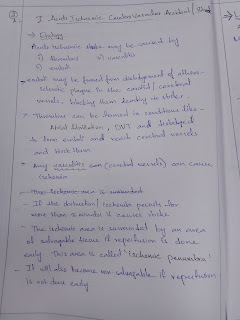 I Acute Ischaemic Cerebrovascular Accident /
→ Etiology
Acute ischaemic may be caused by
i) thrombus iii) vasculitis
ii) emboli
- emboli may be formed from development of athero-
sclerotic plaque in the carotid / cerebral
vessels, blocking them leading to stroke.
- Thrombus can be formed in conditions like -
Atrial fibrillation, DVT and dislodged
to form emboli and reach cerebral vessels
and block them
* Any vasculitis (cerebral vessels) can cause
ischaemia
- The ischemic area is surrounded
- If the obstruction / ischaemia persists for
more than minutes it causes stroke
- The ischaemic area is surrounded by an area
of salvageable tissue if reperfusion is done
early. This area is called 'ischaemic penumbra'
- It will also become non-salvageable if reperfusion
is not done early